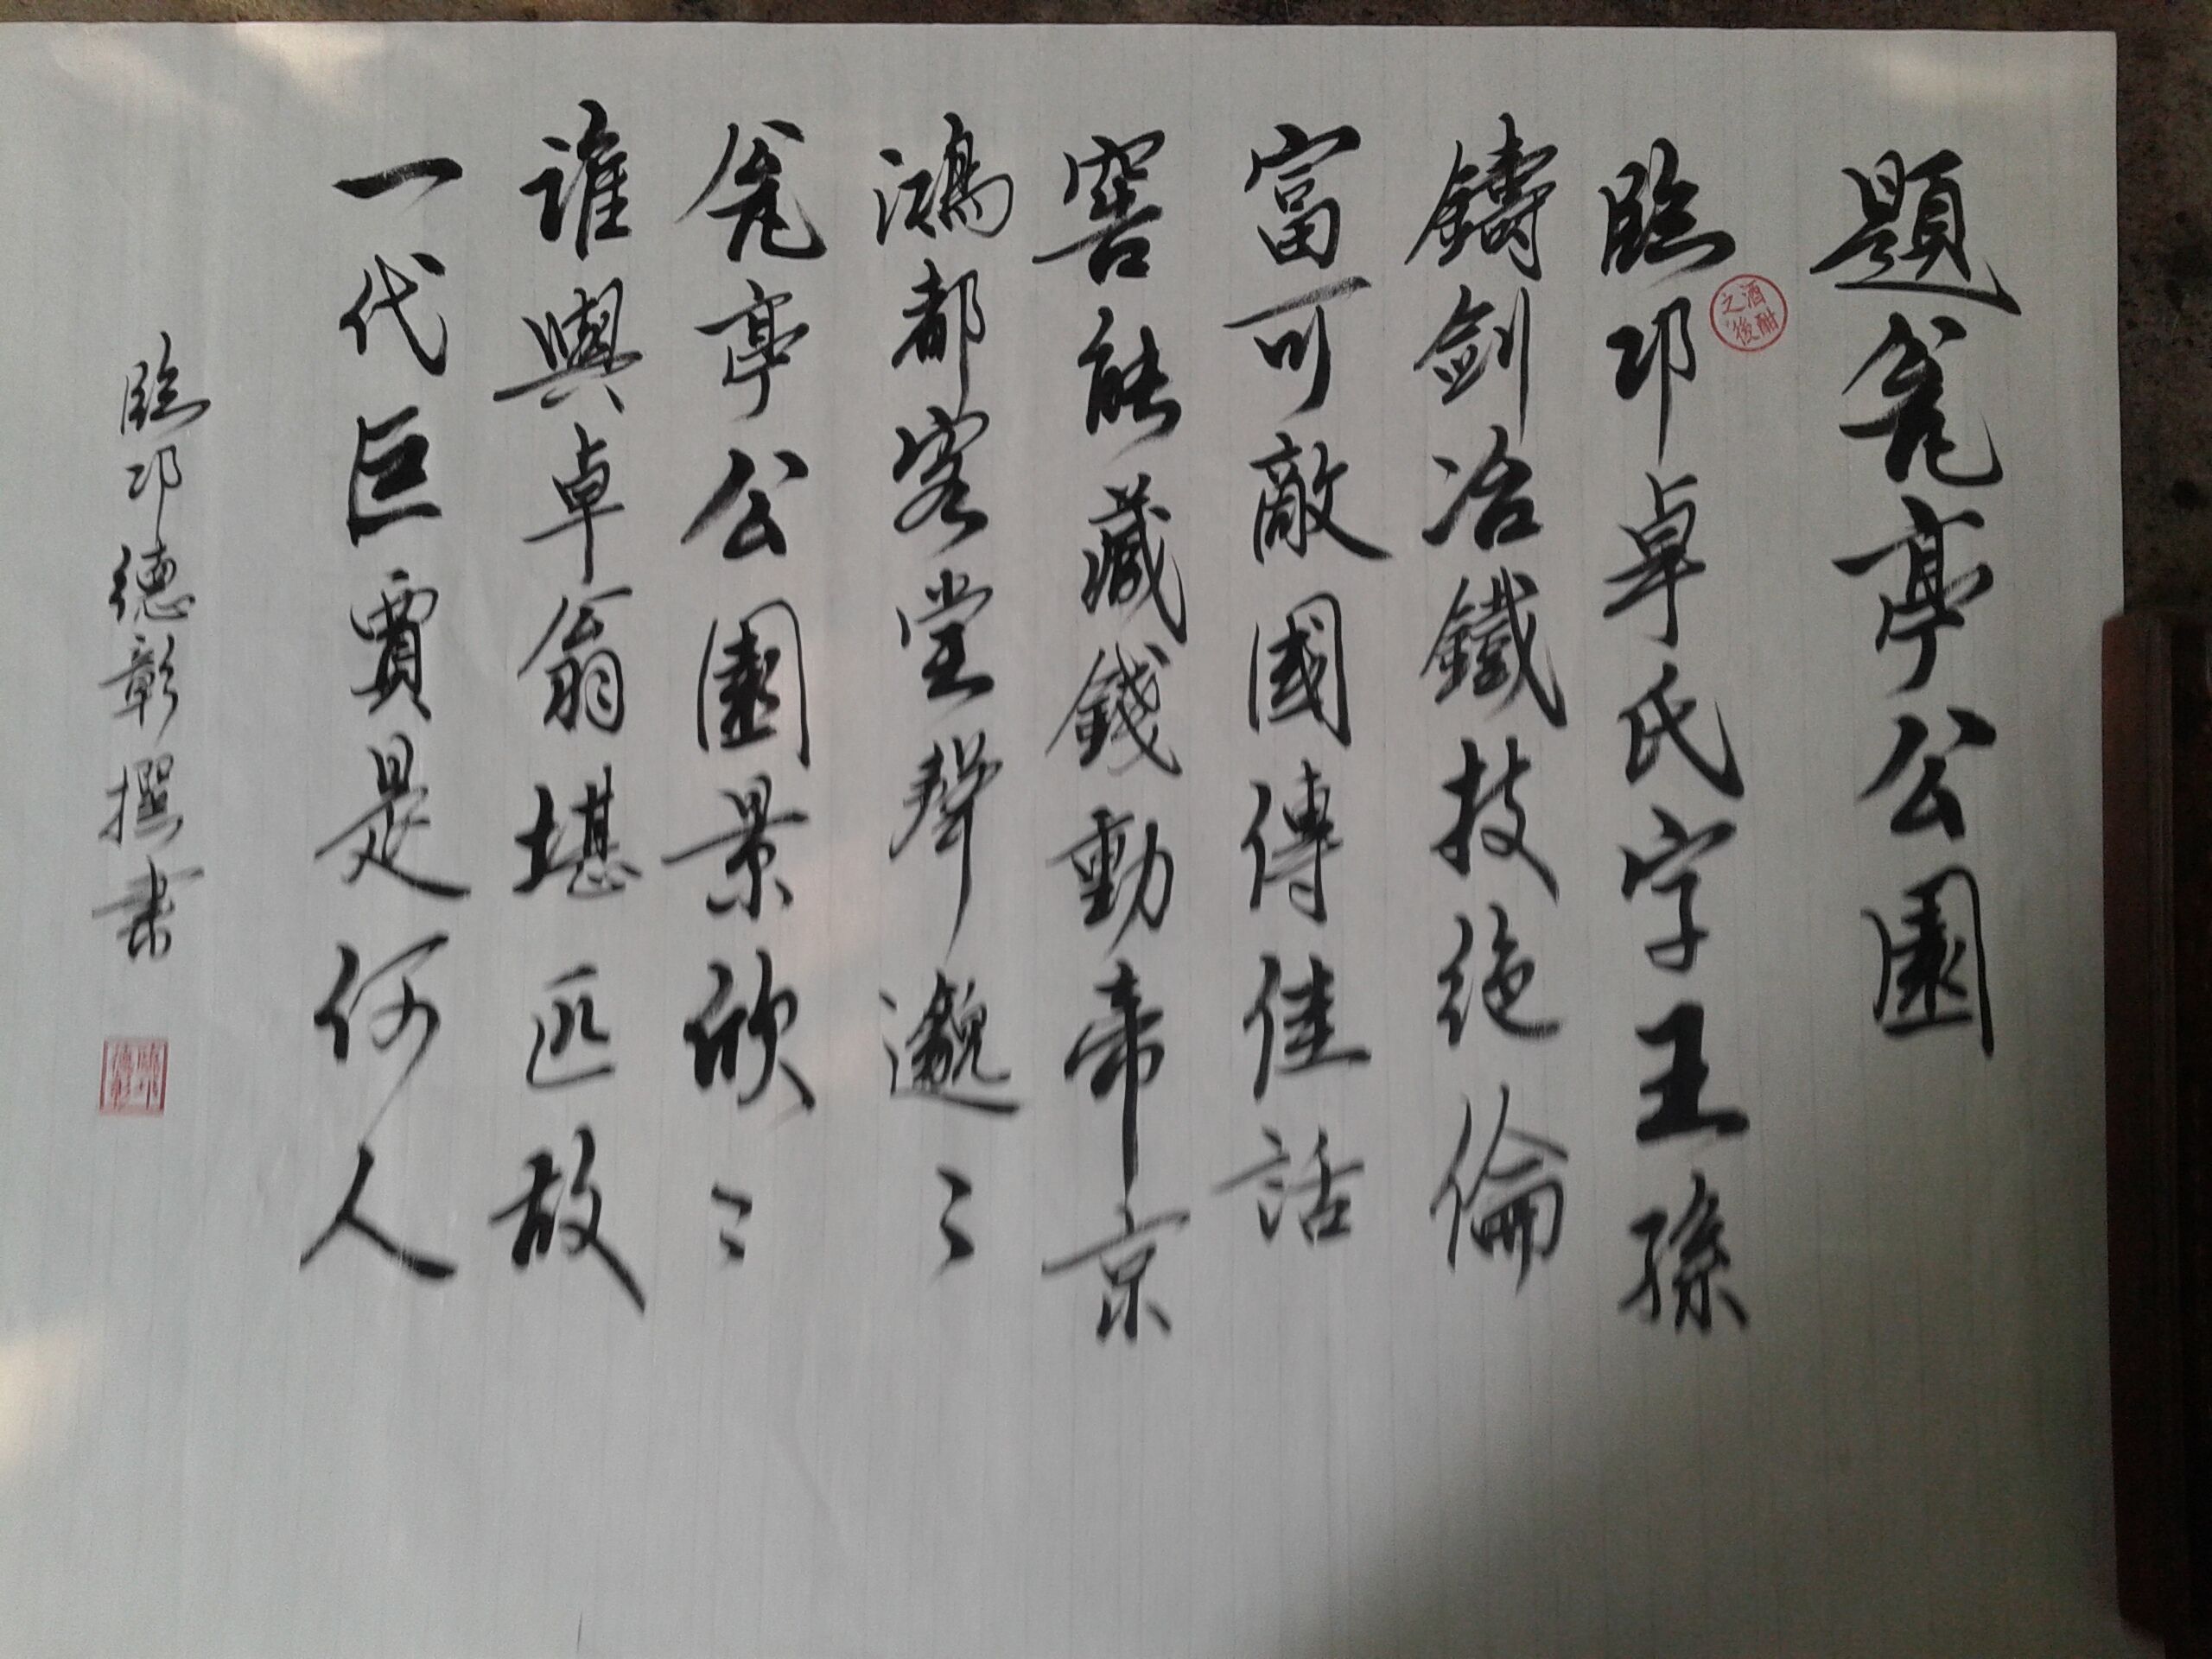 題瓮亭公園
臨邛卓氏字王孫
酒酣之後
鑄劍冶鐵技絕倫
富可敵國傳佳話
窖能藏錢動帝京
鴻都客堂聲邈〻
瓮亭公園景欣〻
誰與卓翁堪匹敌
一代巨賈是何人
臨邛德彰撰書
臨邛德彰